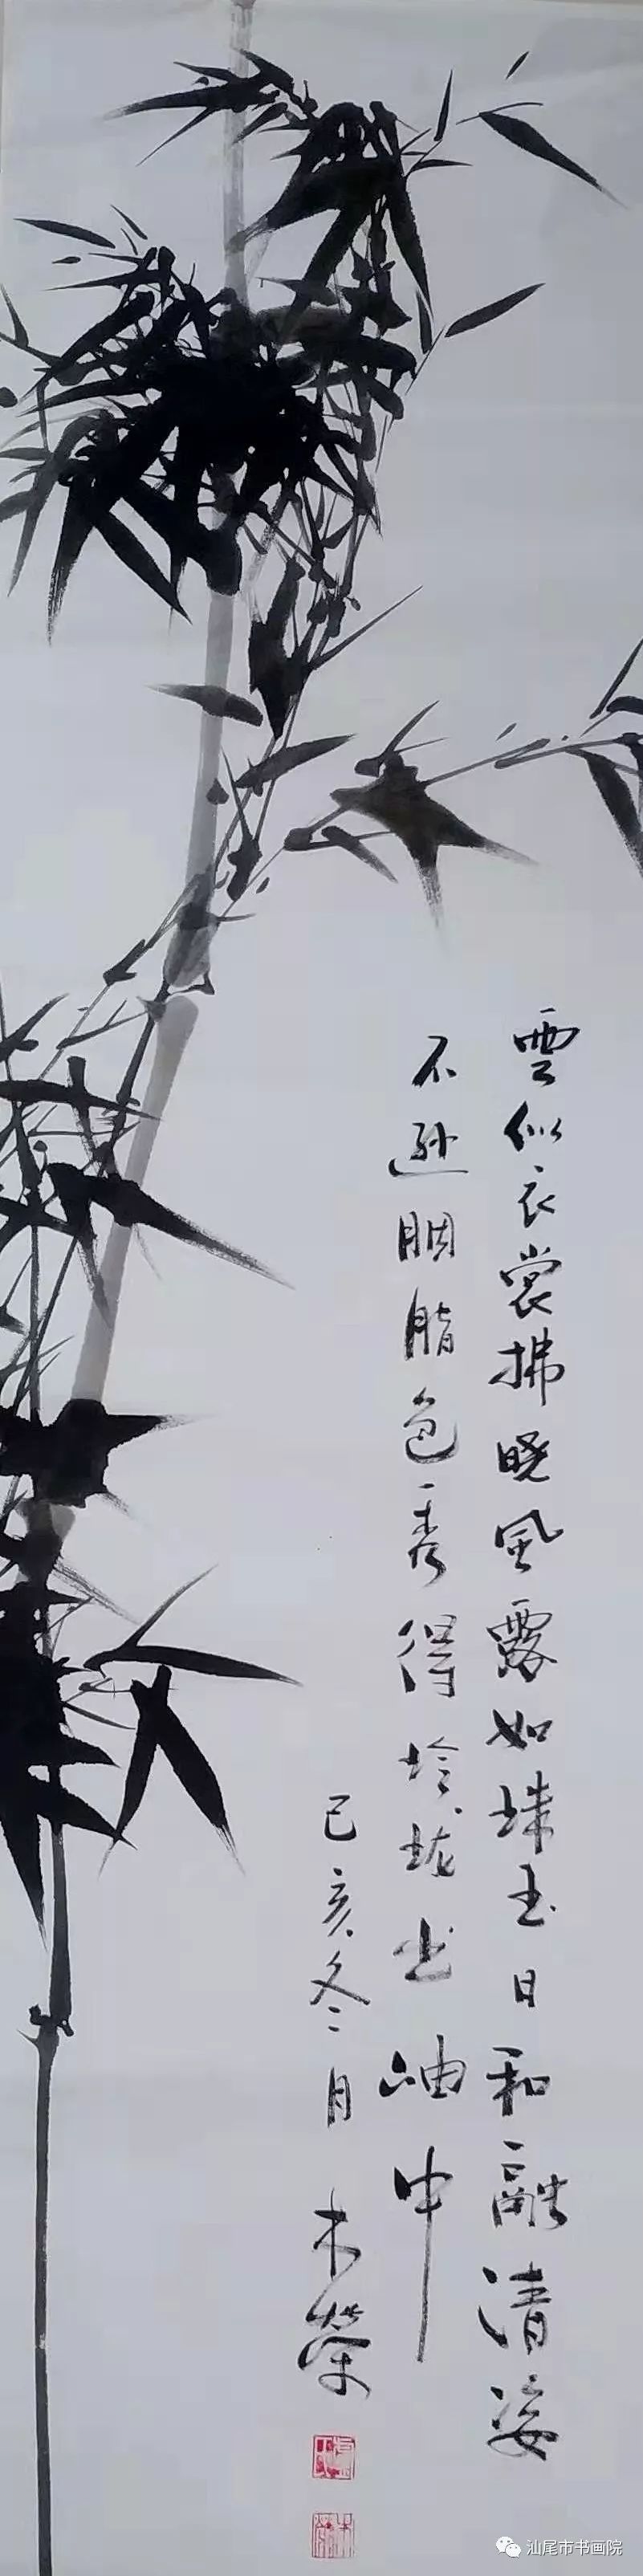 雲似衣裳拂曉風露如珠玉日和融清姿
不遜胭脂色秀得玲珑出岫中
己亥冬月
木榮
汕尾市书画院